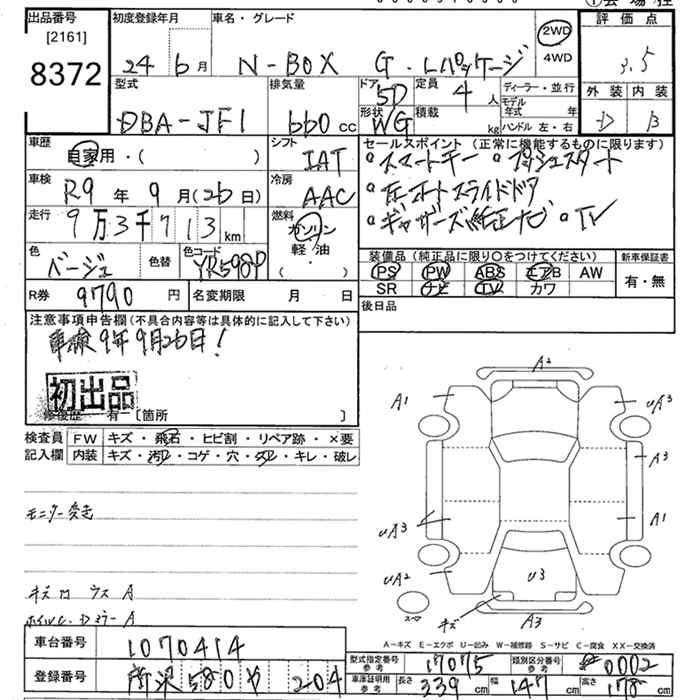 出品番号
[2161]
8372
初度登録年月
24 6月
車名・グレード
N-BOX G・Lパッケージ
2WD
4WD
評価点
3.5
型式
DBA-JF1
排気量
660 cc
ドア
5D
形状
WG
定員
4 人
積載
kg
ディーラー・並行
モデル年式 年
ハンドル 左・右
外装 内装
D B
車歴
自家用・( )
シフト
IAT
セールスポイント(正常に機能するものに限ります)
・スマートキー ・プッシュスタート
・左オートスライドドア
・ギャザーズ純正ナビ ・TV
車検
R9年 9月(26日)
冷房
AAC
走行
9万3千713km
燃料
ガソリン
軽・油
( )
色
ベージュ
色替
色コード
YR598P
装備品(純正品に限り○をつけてください)
PS PW ABS エアB AW
SR ナビ TV カワ
新車保証書
有・無
R券 9790円
名変期限 月 日
後日品
注意事項申告欄(不具合内容等は具体的に記入して下さい)
車検9年9月26日!
初出品
修復歴 有 〔箇所 〕
検査員記入欄
FW キズ・飛石・ヒビ割・リペア跡・×要
内装 キズ・汚レ・コゲ・穴・スレ・キレ・破レ
モニター変色
A2
A1
UA3
A3
UA3
A1
UA2
U3
キズ
A3
A-キズ E-エクボ U-凹み W-補修跡 S-サビ C-腐食 XX-交換済
車台番号 1070414
登録番号 所沢 580 や 204
型式指定番号 参考 17075
類別区分番号 参考 0002
車庫証明用 参考 長さ 339cm 幅 147cm 高さ 178cm